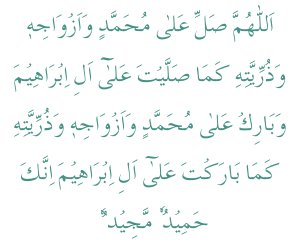 اَللّٰهُمَّ صَلِّ عَلٰى مُحَمَّدٍ وَاَزْوَاجِهٖ
وَذُرِّيَّتِهٖ كَمَا صَلَّيْتَ عَلٰٓى اٰلِ اِبْرَاهِيْمَ
وَبَارِكْ عَلٰى مُحَمَّدٍ وَاَزْوَاجِهٖ وَذُرِّيَّتِهٖ
كَمَا بَارَكْتَ عَلٰٓى اٰلِ اِبْرَاهِيْمَ اِنَّكَ
حَمِيْدٌ مَّجِيْدٌ